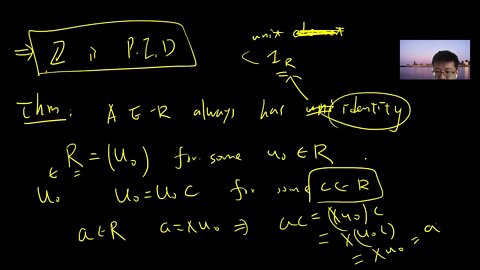 ⇒ ℤ is P.I.D
unit
1_R
Thm: A E-R always has identity
R = (u₀) for some u₀ ∈ R.
u₀ u₀ = u₀ c for some c ∈ R
a ∈ R a = x u₀ ⇒ ac = (x u₀) c
= x (u₀ c)
= x u₀ = a